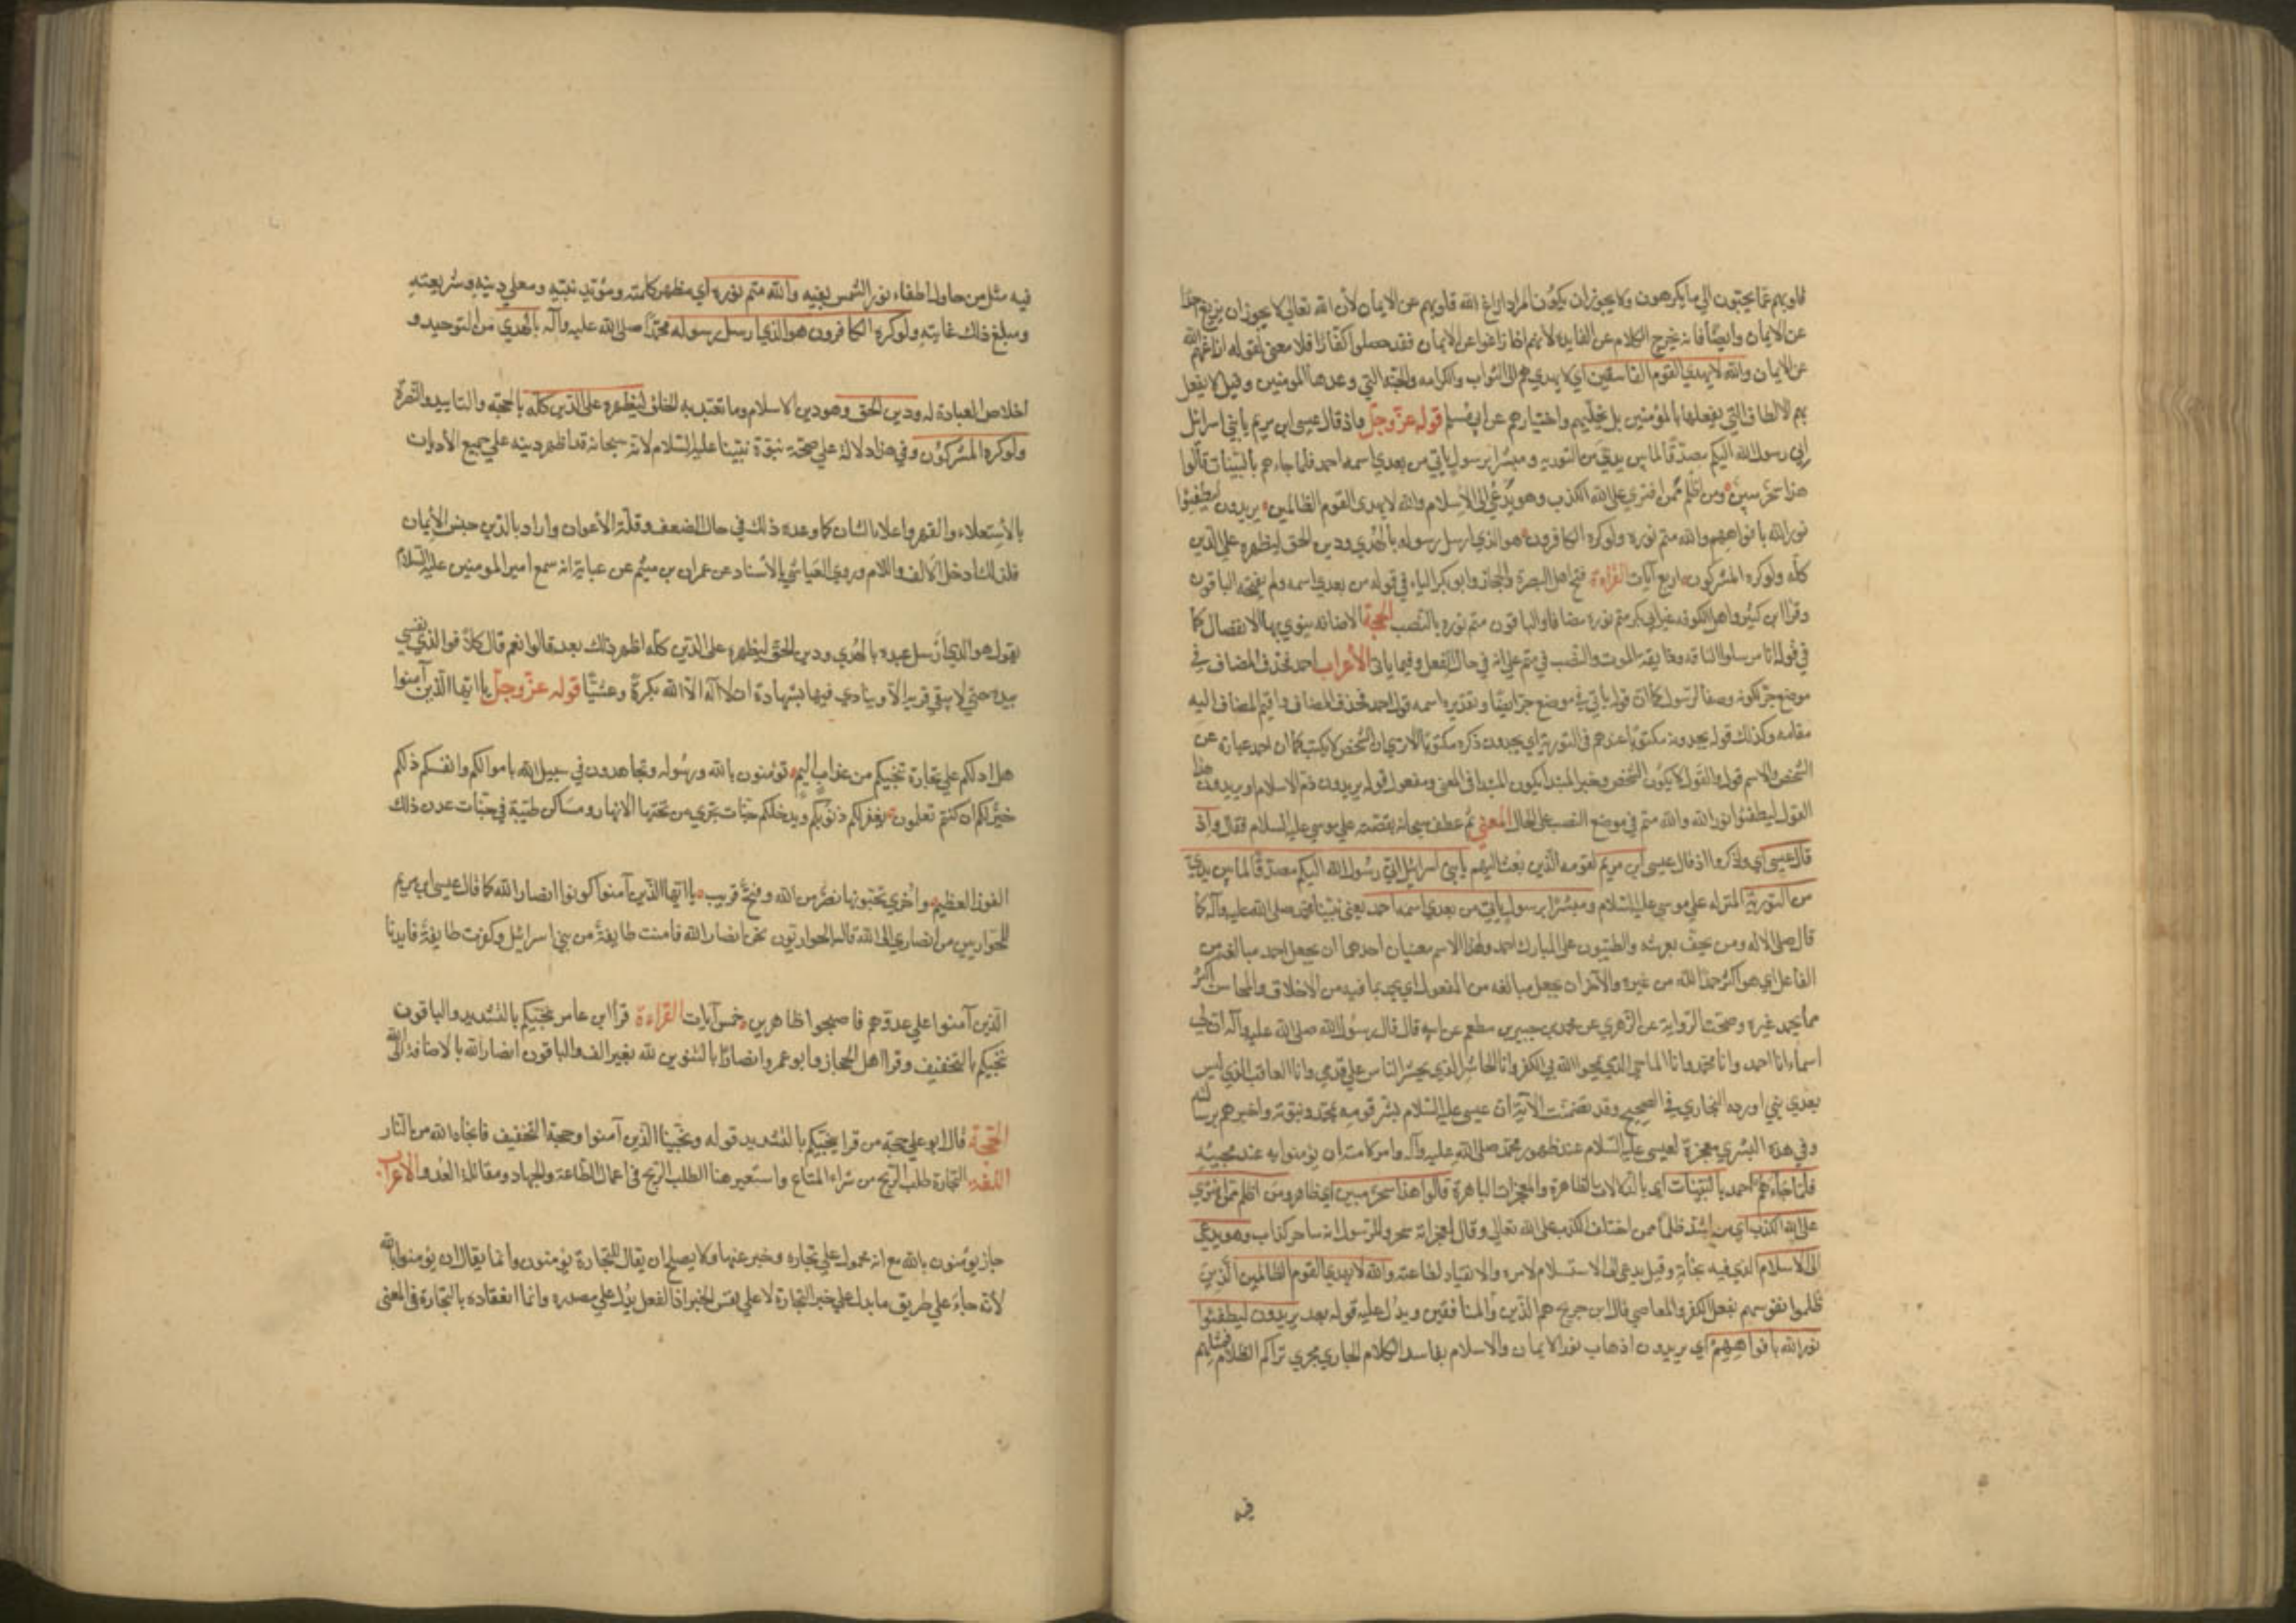 قلوبهم عما يحبون الى ما يكرهون ولا يجوز ان يكون المراد ازاغ الله قلوبهم عن الايمان لأن الله تعالى لا يجوز ان يزيغ احدا
عن الايمان وايضا فانه يخرج الكلام عن الفايدة لانهم اذا زاغوا عن الايمان فقد حصلوا كفارا فلا معنى لقوله ازاغهم الله
عن الايمان والله لا يهدي القوم الفاسقين اي لا يهديهم الى الثواب والكرامه والجنة التي وعدها المومنين وقيل لا يفعل
بهم الالطاف التي يفعلها بالمؤمنين بل يخليهم واختيارهم عن ابي مسلم قوله عز وجل واذ قال عيسى ابن مريم يا بني اسرائيل
اني رسول الله اليكم مصدقا لما بين يدي من التورية ومبشرا برسول ياتي من بعدي اسمه احمد فلما جاءهم بالبينات قالوا
هذا سحر مبين ومن اظلم ممن افترى على الله الكذب وهو يدعى الى الاسلام والله لا يهدى القوم الظالمين يريدون ليطفئوا
نور الله بافواههم والله متم نوره ولوكره الكافرون هو الذي ارسل رسوله بالهدي ودين الحق ليظهره على الدين
كله ولوكره المشركون اربع آيات القراءة فتح اهل البصرة والحجاز وابو بكر الياء في قوله من بعدي اسمه ولم يفتحه الباقون
وقرا ابن كثير واهل الكوفه غير ابي بكر متم نوره مضافا والباقون متم نوره بالنصب الحجة الاضافه ينوي بها الانفصال كما
في قوله انا مرسلوا الناقه وذايقة الموت والنصب في متم على انه في حال الفعل وفيما ياتى الأعراب احمد فحذف المضاف في
موضع جر لكونه وصفا لرسول كما ان قوله ياتي في موضع جر ايضا وتقديره اسمه قول احمد فحذف المضاف واقيم المضاف اليه
مقامه وكذلك قوله يجدونه مكتوبا عندهم في التورية اي يجدون ذكره مكتوبا الا ترى ان الشخص لا يكتب كما ان احمد عبارة عن
الشخص والاسم قول والقول لا يكون الشخص وخبر المبتدا يكون المبتدا في المعنى ومفعول قوله يريدون ذم الاسلام او يريدون هذا
القول ليطفئوا نور الله والله متم في موضع النصب على الحال المعنى ثم عطف سبحانه بقصة على موسى عليه السلام فقال واذ
قال عيسى اي واذكروا اذ قال عيسى ابن مريم لقومه الذين بعث اليهم يا بني اسرائيل اني رسول الله اليكم مصدقا لما بين يدي
من التورية المنزله على موسى عليه السلام ومبشرا برسول ياتي من بعدي اسمه احمد يعني نبينا محمد صلى الله عليه وآله كما
قال صلى الاله ومن يحف بعرشه والطيبون على المبارك احمد ولهذا الاسم معنيان احدهما ان يجعل احمد مبالغه من
الفاعل اي هو اكثر حمدا لله من غيره والآخر ان يجعل مبالغه من المفعول اي يحمد بما فيه من الاخلاق والمحاسن اكثر
مما يحمد غيره وصحت الرواية عن الزهري عن محمد بن جبير بن مطعم عن ابيه قال قال رسول الله صلى الله عليه وآله ان لي
اسماء انا احمد وانا محمد وانا الماحي الذي يمحوا الله بي الكفر وانا الحاشر الذي يحشر الناس على قدمي وانا العاقب الذي ليس
بعدي نبي اورده البخاري في الصحيح وقد تضمنت الآية ان عيسى عليه السلام بشر قومه بمحمد ونبوته واخبرهم برسالته
وفي هذه البشري معجزة لعيسى عليه السلام عند ظهور محمد صلى الله عليه وآله وامر لامته ان يؤمنوا به عند مجيئه
فلما جاءهم احمد بالبينات اي بالدلالات الظاهرة والمعجزات الباهرة قالوا هذا سحر مبين اي ظاهر ومن اظلم ممن افترى
على الله الكذب اي من اشد ظلما ممن اختلق الكذب على الله تعالى وقال لمعجزاته سحر وللرسول انه ساحر كذاب وهو يدعى
الى الاسلام الذي فيه نجاته وقيل يدعى الى الاستسلام لامره والانقياد لطاعته والله لا يهدي القوم الظالمين الذين
ظلموا نفوسهم بفعل الكفر والمعاصي قال ابن جريج هم الذين والمنافقين ويدل عليه قوله بعد يريدون ليطفئوا
نور الله بافواههم اي يريدون اذهاب نور الايمان والاسلام بفاسد الكلام الجاري مجري تراكم الظلام فمثلهم
فيه
فيه مثل من حاول اطفاء نور الشمس بفيه والله متم نوره اي مظهر كلمته ومؤيد نبيه ومعلي دينه وشريعته
ومبلغ ذلك غايته ولوكره الكافرون هو الذي ارسل رسوله محمدا صلى الله عليه وآله بالهدي من التوحيد و
اخلاص العبادة له ودين الحق وهو دين الاسلام وما تعبد به الخلق ليظهره على الدين كله بالحجة والتاييد والنصرة
ولوكره المشركون وفي هذا دلالة على صحة نبوة نبينا عليه السلام لانه سبحانه قد اظهر دينه على جميع الأديان
بالأستعلاء والقهر واعلاء الشان كما وعده ذلك في حال الضعف وقلة الأعوان واراد بالدين جنس الأديان
فلذلك ادخل الالف واللام وروي العياشي بالأسناد عن عمران بن ميثم عن عباية انه سمع امير المومنين عليه السلام
يقول هو الذي ارسل عبده بالهدي ودين الحق ليظهره على الدين كله اظهر ذلك بعد قالوا نعم قال كلا فو الذي نفسي
بيده حتى لا يبقي قرية الا وينادي فيها بشهادة ان لا اله الا الله بكرة وعشيا قوله عز وجل يا ايها الذين آمنوا
هل ادلكم على تجارة تنجيكم من عذاب اليم تؤمنون بالله ورسوله وتجاهدون في سبيل الله باموالكم وانفسكم ذلكم
خير لكم ان كنتم تعلمون يغفر لكم ذنوبكم ويدخلكم جنات تجري من تحتها الانهار ومساكن طيبة في جنات عدن ذلك
الفوز العظيم واخري تحبونها نصر من الله وفتح قريب يا ايها الذين آمنوا كونوا انصار الله كما قال عيسى ابن مريم
للحواريين من انصاري الى الله قال الحواريون نحن انصار الله فآمنت طايفة من بني اسرائيل وكفرت طايفة فايدنا
الذين آمنوا على عدوهم فاصبحوا ظاهرين خمس آيات القراءة قرا ابن عامر تنجيكم بالتشديد والباقون
تنجيكم بالتخفيف وقرا اهل الحجاز وابو عمرو انصارا بالتنوين لله بغير الف والباقون انصار الله بالاضافة الى الله
الحجة قال ابو علي حجة من قرا ينجيكم بالتشديد قوله ونجينا الذين آمنوا وحجة التخفيف فانجاه الله من النار
اللغة التجارة طلب الربح من شراء المتاع واستعير هنا الطلب الربح في اعمال الطاعة والجهاد ومقاتلة العدو الاعراب
جاز يؤمنون بالله مع انه محمول على تجاره وخبر عنها ولا يصلح ان يقال للتجارة يؤمنون وانما يقال ان يؤمنوا بالله
لأنه جاء على طريق ما يدل على خبر التجارة لا على نفس الخبر اذ الفعل يدل على مصدره وانما انعقاده بالتجارة في المعنى